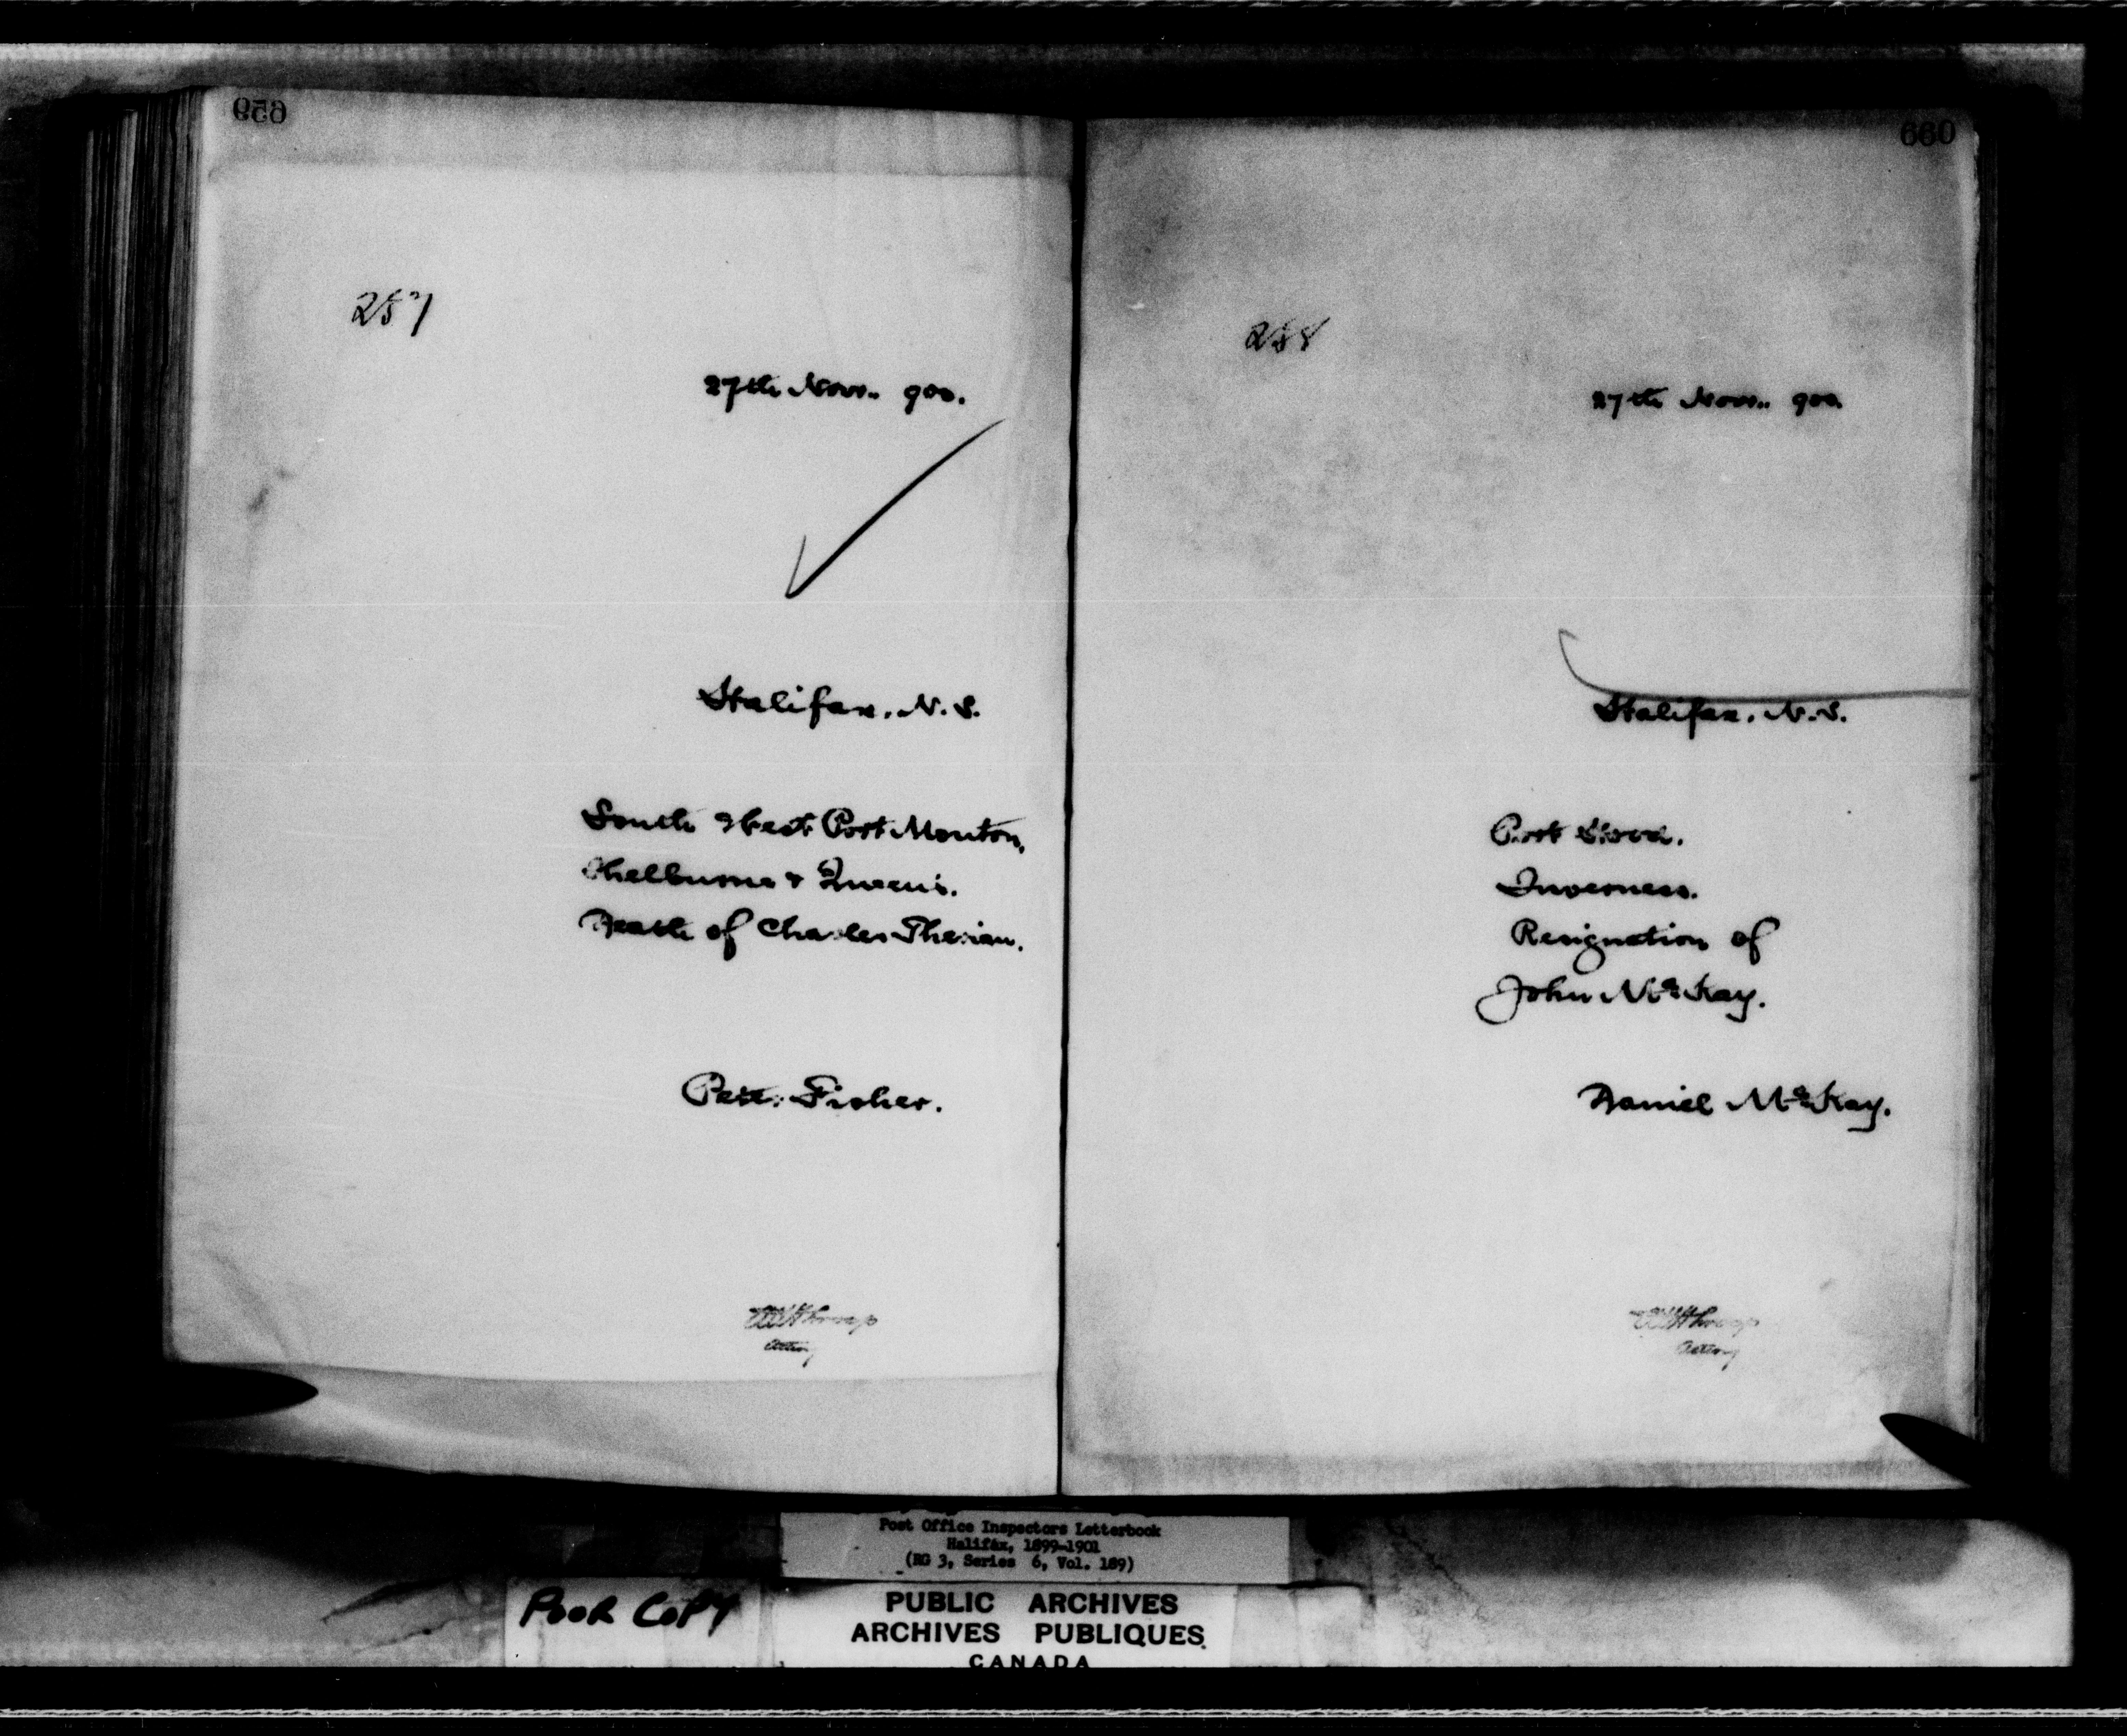 659
257
27th Nov.. 900.
Halifax. N.S.
South West Port Mouton,
Shelburne & Queen's.
Death of Charles Therian.
Pete: Fisher.
Acting
660
258
27th Nov.. 900.
Halifax. N.S.
Port Hood.
Inverness.
Resignation of
John McKay.
Daniel McKay.
Acting
Post Office Inspectors Letterbook
Halifax, 1899-1901
(RG 3, Series 6, Vol. 189)
POOR COPY
PUBLIC ARCHIVES
ARCHIVES PUBLIQUES
CANADA